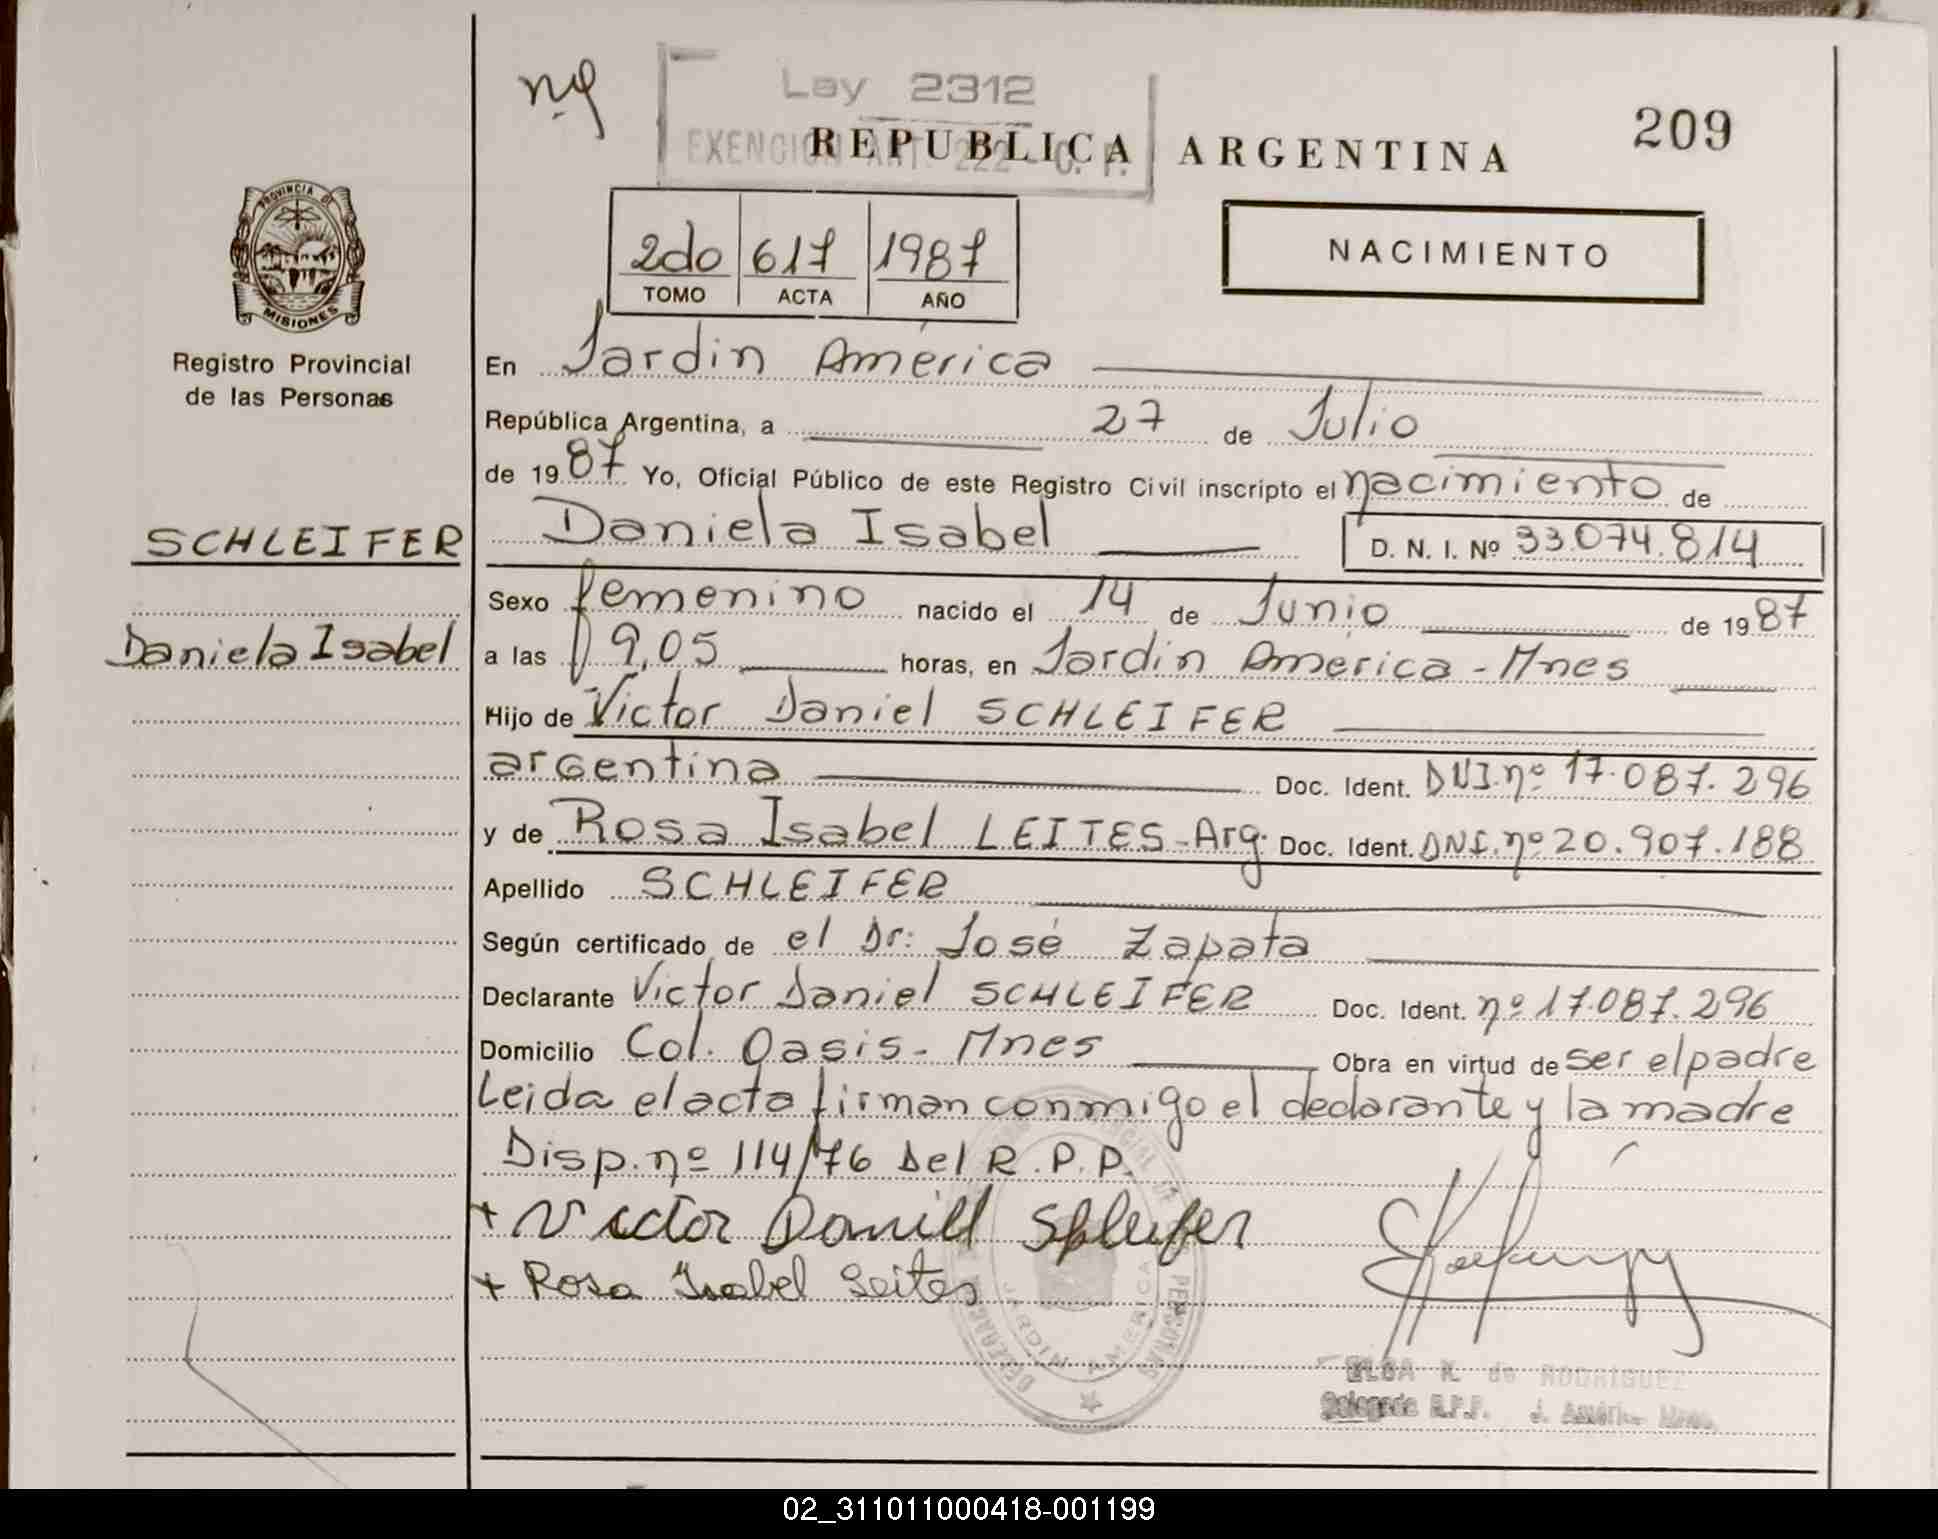 nº
Ley 2312
EXENCION ART. 222 C. F.
REPUBLICA ARGENTINA
209
PROVINCIA DE
MISIONES
Registro Provincial
de las Personas
2do 617 1987
TOMO ACTA AÑO
NACIMIENTO
En Jardin América
República Argentina, a 27 de Julio
de 1987 Yo, Oficial Público de este Registro Civil inscripto el nacimiento de
SCHLEIFER
Daniela Isabel D. N. I. Nº 33.074.814
Sexo femenino nacido el 14 de Junio de 1987
Daniela Isabel
a las 9,05 horas, en Jardin America - Mnes
Hijo de Victor Daniel SCHLEIFER
argentina Doc. Ident. DNI. nº 17.087.296
y de Rosa Isabel LEITES - Arg. Doc. Ident. DNI. nº 20.907.188
Apellido SCHLEIFER
Según certificado de el Dr: José Zapata
Declarante Victor Daniel SCHLEIFER Doc. Ident. nº 17.087.296
Domicilio Col. Oasis - Mnes Obra en virtud de ser el padre
Leida el acta firman conmigo el declarante y la madre
Disp. nº 114/76 Del R.P.P.
+ Victor Daniel Schleifer
+ Rosa Isabel Leites
JARDIN AMERICA
ELSA K. de RODRIGUEZ
Delegada R.P.P. J. América Mnes.
02_311011000418-001199